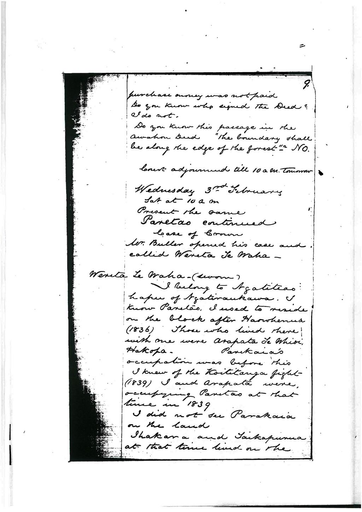 9
purchase money was not paid
Do you know who signed the Deed?
I do not.
Do you know this passage in the
Awahou Deed "The boundary shall
be along the edge of the forest" NO.
Court adjourned till 10 a m tomorrow
Wednesday 3rd February
Sat at 10 a m
Present the same
Paretao continued
Case of Crown
Mr. Buller opened his case and
called Wereta Te Waha —
Wereta Te Waha - (sworn)
I belong to Ngatiteao
hapu of Ngatiraukawa. I
know Paretao. I used to reside
on the block after Haowhenua
(1836) Those who lived there
with one were Arapata Te Whioi
Hakopa. Parakaia's
occupation was before this
I knew of the Kuititanga fight
(1839) I and Arapata were
occupying Paretao at that
time in 1839
I did not see Parakaia
on the land
Ihakara and Taikapurua
at that time lived on the